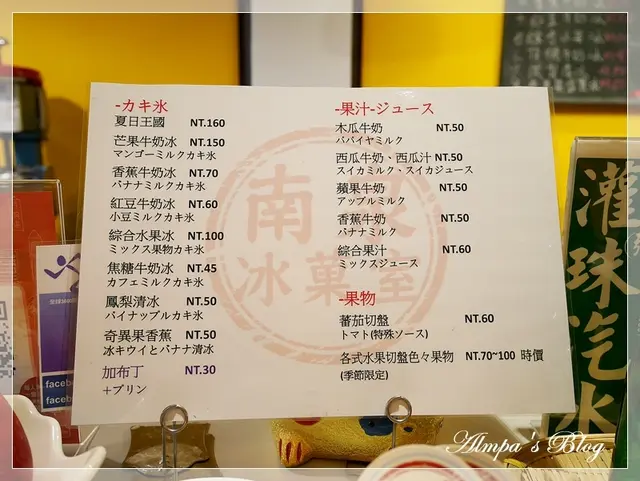 -カキ氷
夏日王國 NT.160
芒果牛奶冰 NT.150
マンゴーミルクカキ氷
香蕉牛奶冰 NT.70
バナナミルクカキ氷
紅豆牛奶冰 NT.60
小豆ミルクカキ氷
綜合水果冰 NT.100
ミックス果物カキ氷
焦糖牛奶冰 NT.45
カフェミルクカキ氷
鳳梨清冰 NT.50
パイナップルカキ氷
奇異果香蕉 NT.50
氷キウイとバナナ清冰
加布丁 NT.30
+プリン
-果汁-ジュース
木瓜牛奶 NT.50
パパイヤミルク
西瓜牛奶、西瓜汁 NT.50
スイカミルク、スイカジュース
蘋果牛奶 NT.50
アップルミルク
香蕉牛奶 NT.50
バナナミルク
綜合果汁 NT.60
ミックスジュース
-果物
蕃茄切盤 NT.60
トマト(特殊ソース)
各式水果切盤色々果物 NT.70~100 時價
(季節限定)
南
冰菓室
灌珠汽水
faceb
faceb
Almpa's Blog